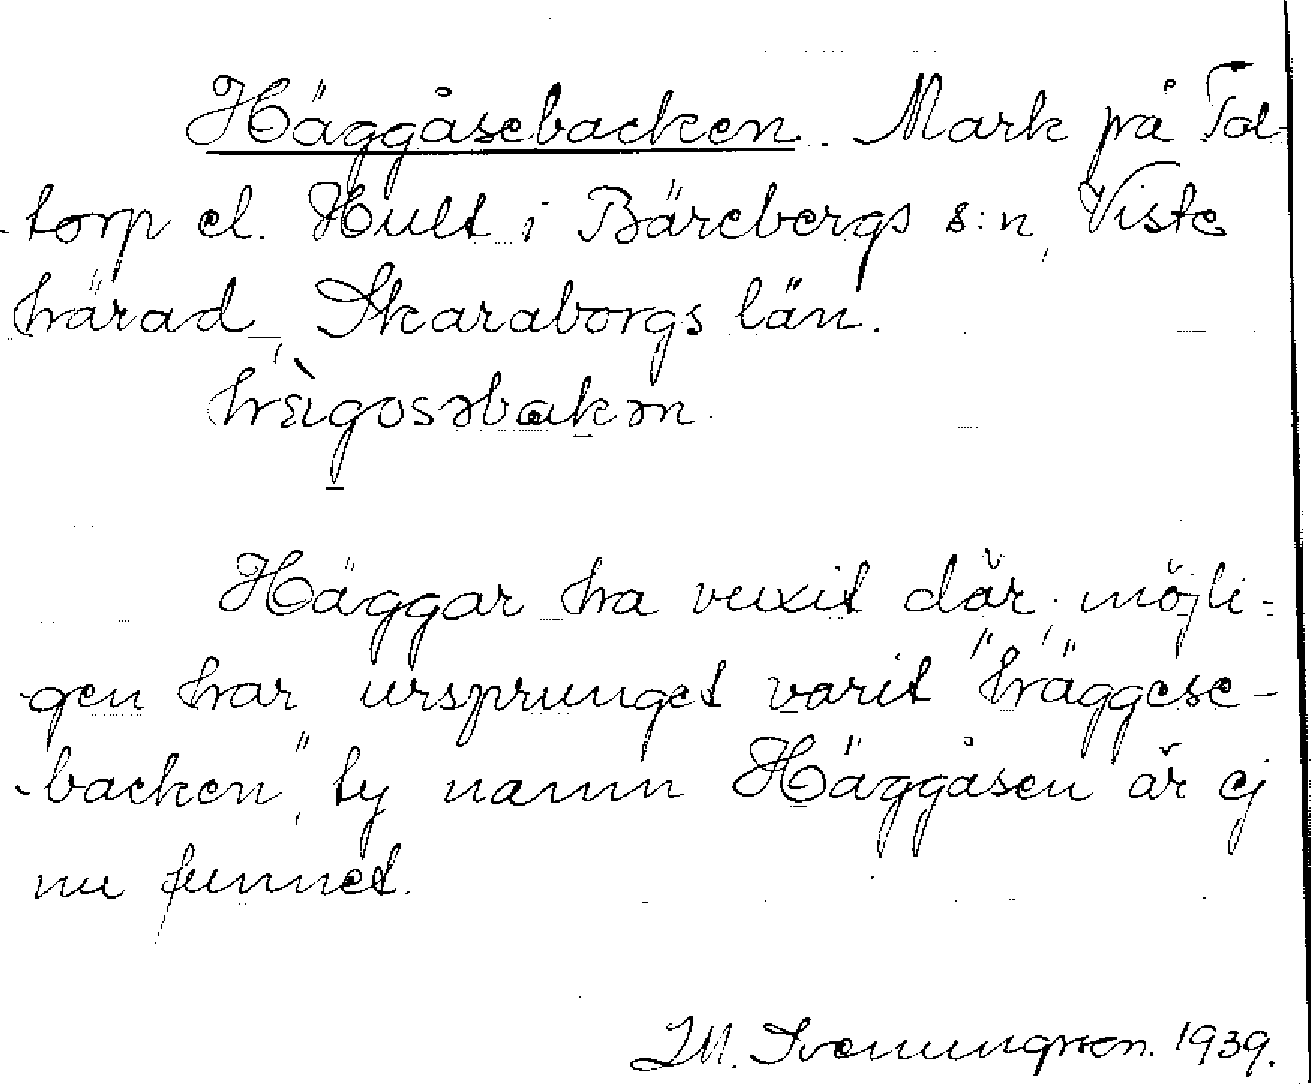 Häggåsebacken. Mark på Tol-
torp el. Hult i Bärebergs s:n, Viste
härad, Skaraborgs län.
hæ̀gosəbakən
Häggar ha vuxit där; möjli-
gen har ursprunget varit "häggese-
backen", ty namn Häggåsen är ej
nu funnet.
I.M. Svenungsson. 1939.